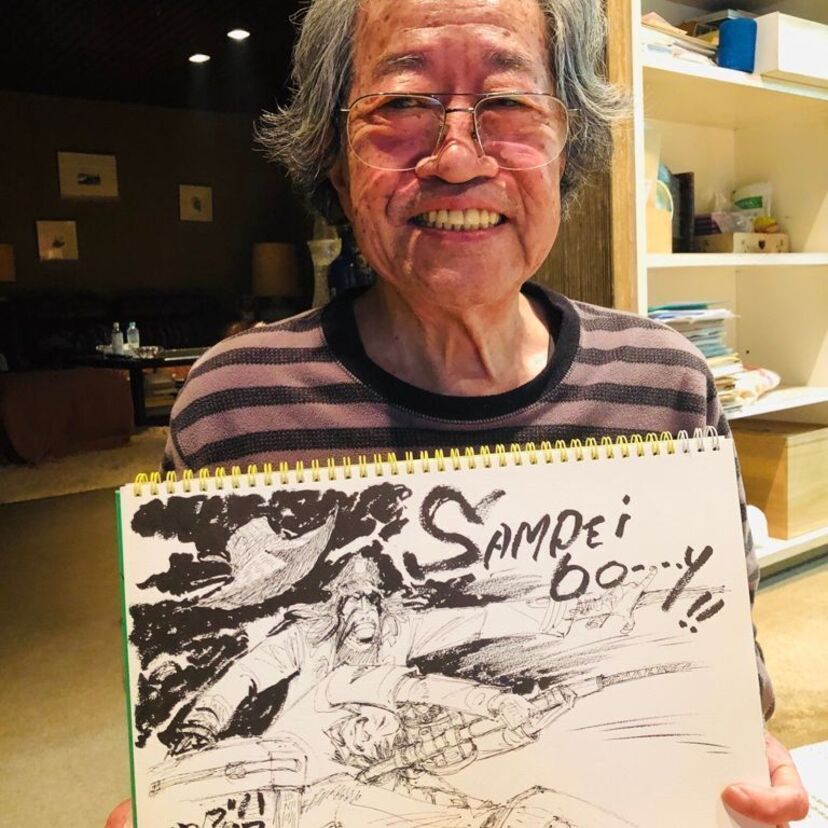 SAMPEi
bo····y!!